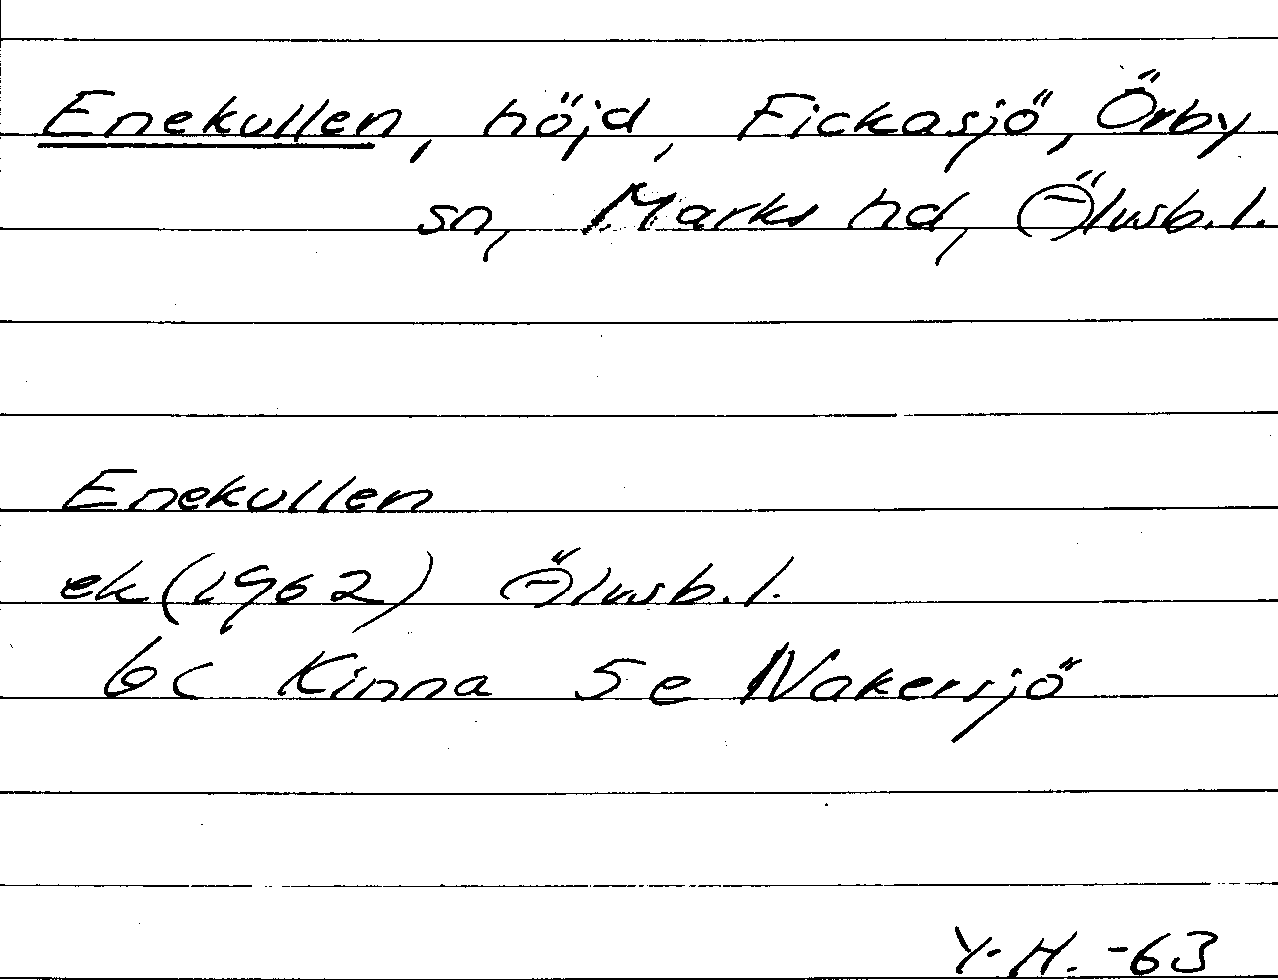 Enekullen, höjd, Fickasjö, Örby
sn, Marks hd, Älvsb. l.
Enekullen
ek (1962) Älvsb. l.
6c Kinna 5e Nakersjö
Y. H. -63